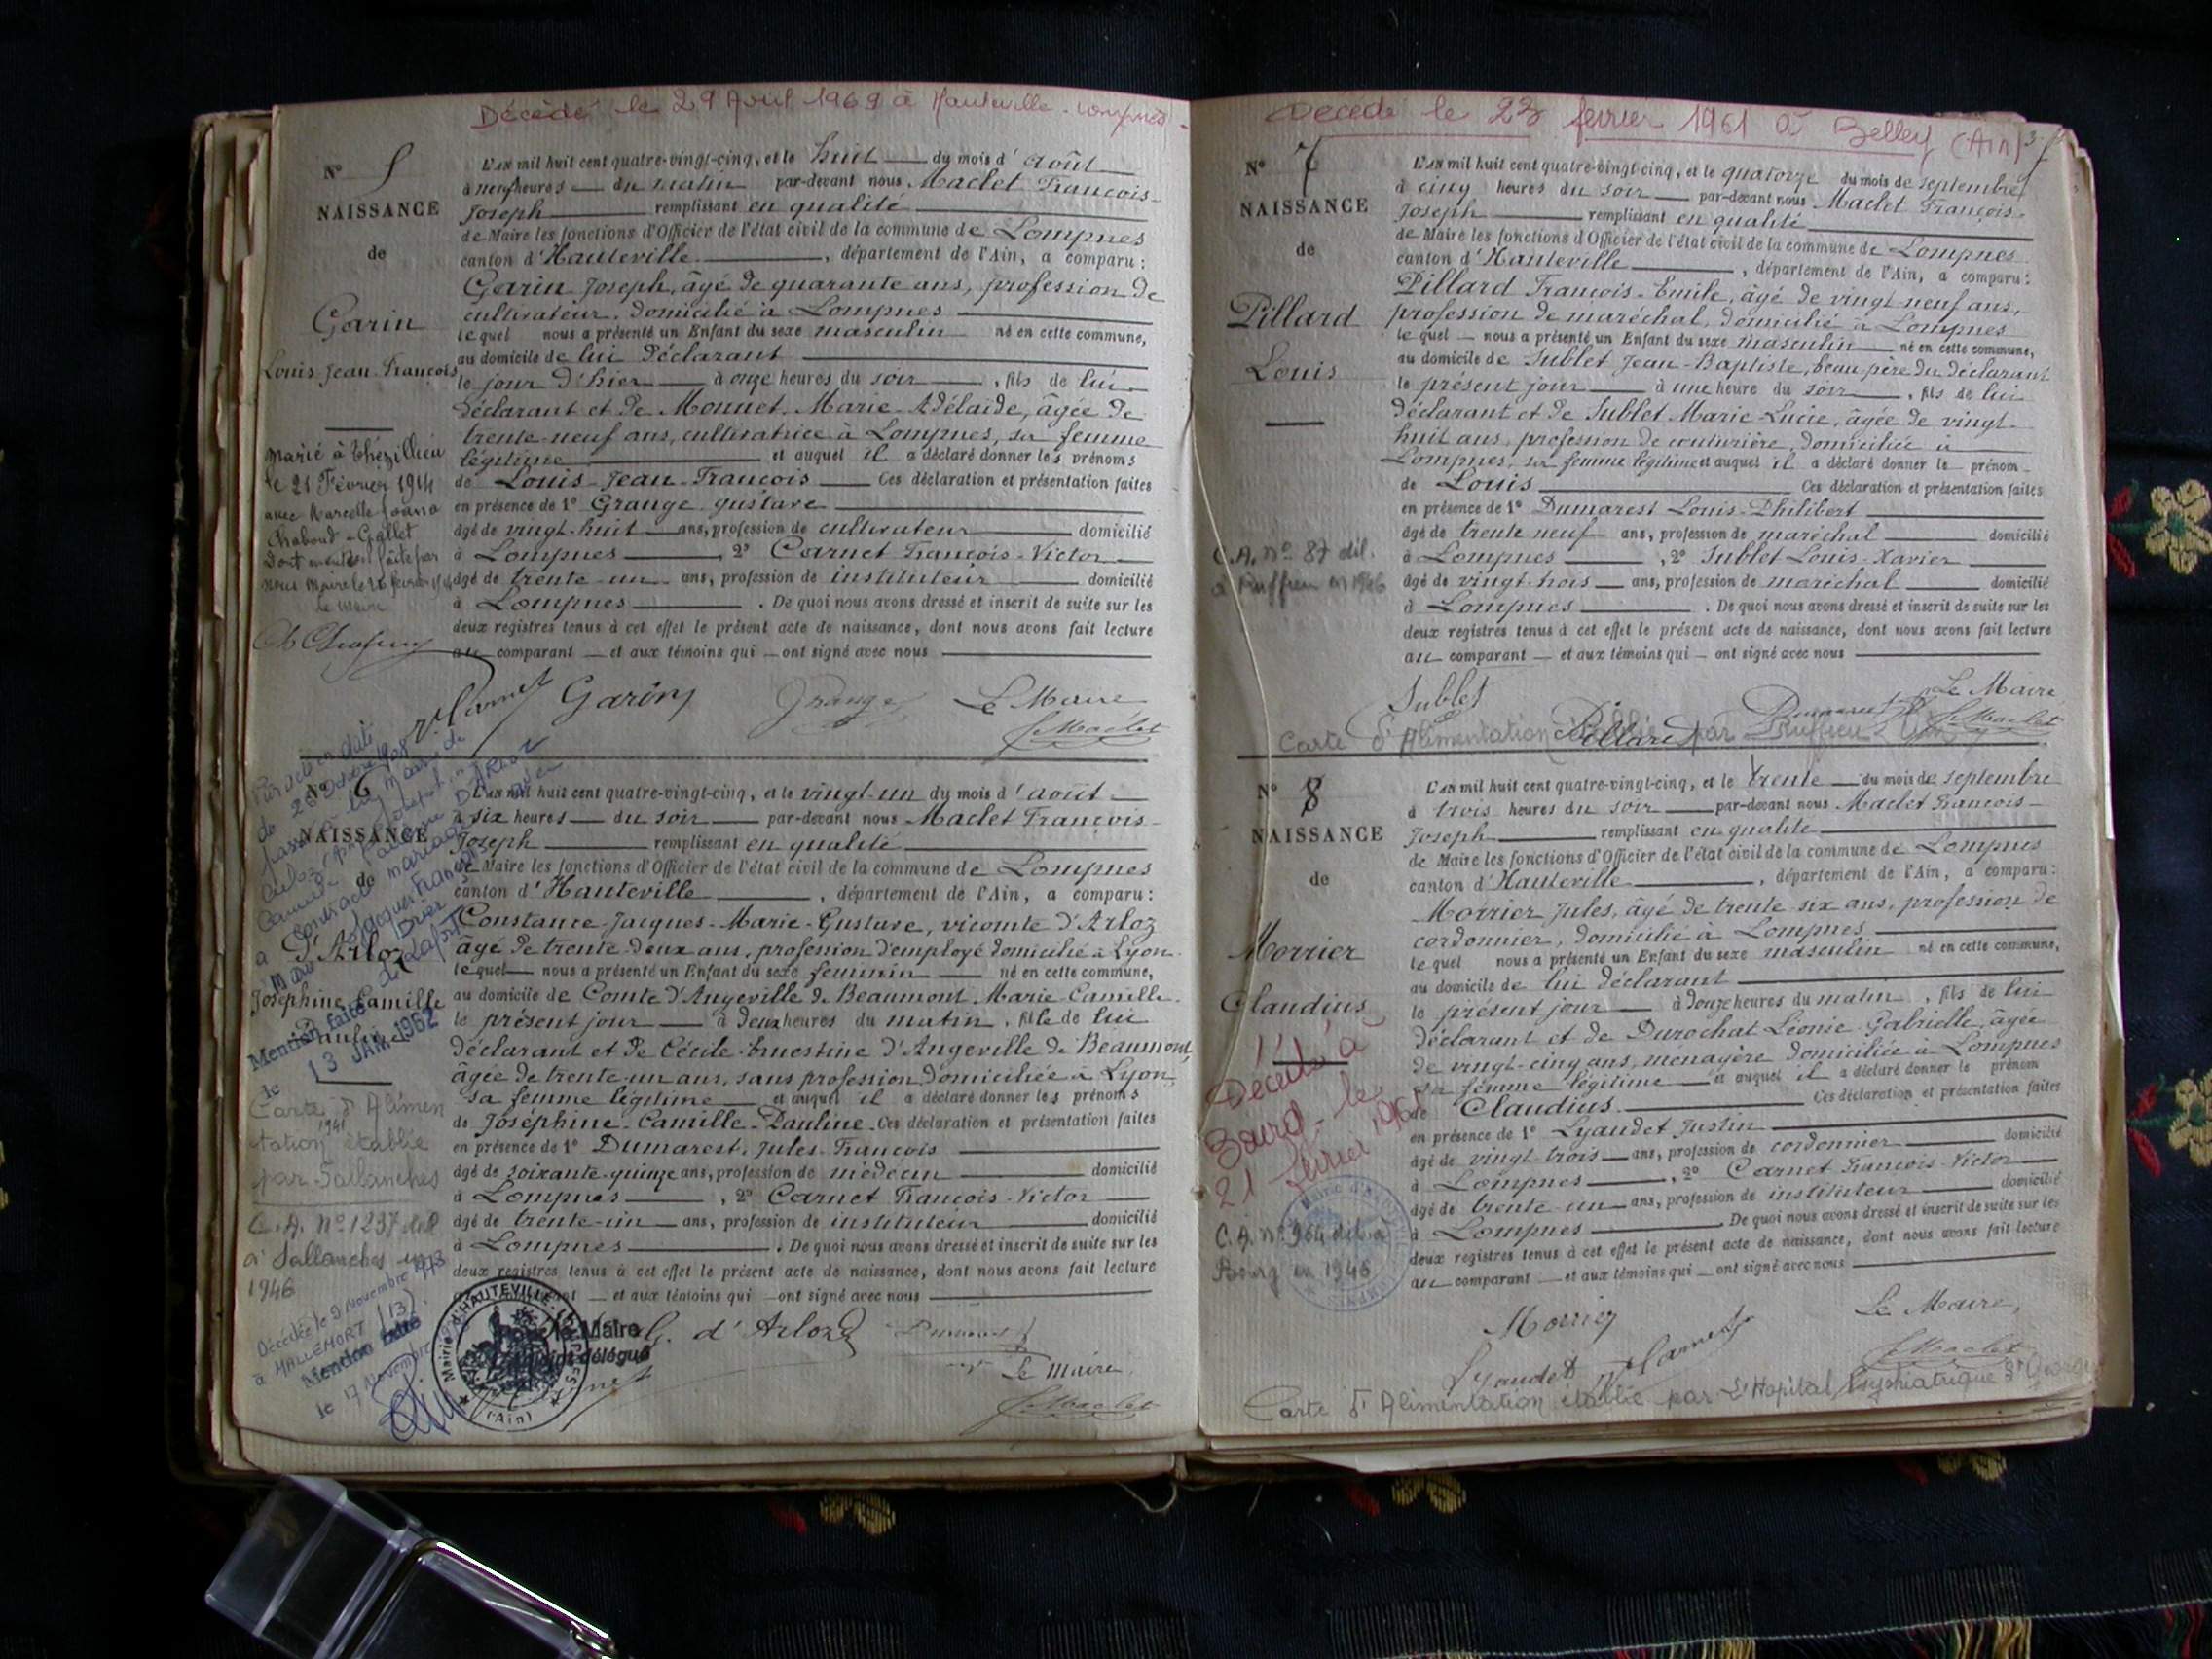 Décédé le 29 Avril 1969 à Hauteville-Lompnès
N° 5
NAISSANCE
de
Garin
Louis Jean François
Marié à Thézillieu
le 21 Février 1914
avec Marcelle
Chabaud-Gallet
Dont mention faite par
nous Maire le 26 février
le Maire
L'AN mil huit cent quatre-vingt-cinq, et le huit du mois d'août
à neuf heures du matin par-devant nous Maclet François-
Joseph remplissant en qualité
de Maire les fonctions d'Officier de l'état civil de la commune de Lompnes
canton d'Hauteville, département de l'Ain, a comparu:
Garin Joseph, âgé de quarante ans, profession de
cultivateur, domicilié à Lompnes
lequel nous a présenté un Enfant du sexe masculin né en cette commune,
au domicile de lui déclarant
le jour d'hier à onze heures du soir, fils de lui
déclarant et de Monnet, Marie-Adélaïde, âgée de
trente-neuf ans, cultivatrice à Lompnes, sa femme
légitime et auquel il a déclaré donner les prénoms
de Louis-Jean-François Ces déclaration et présentation faites
en présence de 1° Grange gustave
âgé de vingt-huit ans, profession de cultivateur domicilié
à Lompnes, 2° Carnet François-Victor
âgé de trente-un ans, profession de instituteur domicilié
à Lompnes. De quoi nous avons dressé et inscrit de suite sur les
deux registres tenus à cet effet le présent acte de naissance, dont nous avons fait lecture
au comparant et aux témoins qui ont signé avec nous
V. Carnet Garin Grange Le Maire
f. Maclet
N° 6
NAISSANCE
de
D'Arloz
Joséphine Camille
Pauline
Mention faite
le 13 JAN. 1962
Carte d'Alimen
tation 1941 établie
par Sallanches
C.A. N° 1237 dél
à Sallanches en
1946
Décédée le 9 Novembre 1973
à MALLEMORT (13).
Mention faite
le 17 Novembre
L'AN mil huit cent quatre-vingt-cinq, et le vingt-un du mois d'août
à six heures du soir par-devant nous Maclet François-
Joseph remplissant en qualité
de Maire les fonctions d'Officier de l'état civil de la commune de Lompnes
canton d'Hauteville, département de l'Ain, a comparu:
Constance-Jacques-Marie-Gustave, vicomte d'Arloz
âgé de trente-deux ans, profession d'employé domicilié à Lyon
lequel nous a présenté un Enfant du sexe féminin né en cette commune,
au domicile de Comte d'Angeville de Beaumont Marie-Camille
le présent jour à deux heures du matin, fille de lui
déclarant et de Cécile-Ernestine d'Angeville de Beaumont
âgée de trente-un ans, sans profession, domiciliée à Lyon,
sa femme légitime et auquel il a déclaré donner les prénoms
de Joséphine-Camille-Pauline. Ces déclaration et présentation faites
en présence de 1° Dumarest, Jules-François
âgé de soixante-quinze ans, profession de médecin domicilié
à Lompnes, 2° Carnet François-Victor
âgé de trente-un ans, profession de instituteur domicilié
à Lompnes. De quoi nous avons dressé et inscrit de suite sur les
deux registres tenus à cet effet le présent acte de naissance, dont nous avons fait lecture
et aux témoins qui ont signé avec nous
G. d'Arloz
Le Maire
f. Maclet
Décédé le 23 février 1961 à Belley (Ain)
N° 7
NAISSANCE
de
Pillard
Louis
C.A. n° 87 dél.
à Ruffieu en 1946
L'AN mil huit cent quatre-vingt-cinq, et le quatorze du mois de septembre
à cinq heures du soir par-devant nous Maclet François-
Joseph remplissant en qualité
de Maire les fonctions d'Officier de l'état civil de la commune de Lompnes
canton d'Hauteville, département de l'Ain, a comparu:
Pillard François-Emile, âgé de vingt-neuf ans,
profession de maréchal, domicilié à Lompnes
lequel nous a présenté un Enfant du sexe masculin né en cette commune,
au domicile de Sublet Jean-Baptiste, beau père du déclarant
le présent jour à une heure du soir, fils de lui
déclarant et de Sublet Marie-Lucie, âgée de vingt-
huit ans, profession de couturière, domiciliée à
Lompnes, sa femme légitime et auquel il a déclaré donner le prénom
de Louis Ces déclaration et présentation faites
en présence de 1° Dumarest Louis-Philibert
âgé de trente neuf ans, profession de maréchal domicilié
à Lompnes, 2° Sublet Louis-Xavier
âgé de vingt-trois ans, profession de maréchal domicilié
à Lompnes. De quoi nous avons dressé et inscrit de suite sur les
deux registres tenus à cet effet le présent acte de naissance, dont nous avons fait lecture
au comparant et aux témoins qui ont signé avec nous
Sublet Pillard Dumarest Le Maire
f. Maclet
Carte d'Alimentation établie par Ruffieu
N° 8
NAISSANCE
de
Morrier
Claudius
Décédé à
Bourg le
21 février 1961
C.A. N° 964 dél. à
Bourg en 1946
L'AN mil huit cent quatre-vingt-cinq, et le trente du mois de septembre
à trois heures du soir par-devant nous Maclet François-
Joseph remplissant en qualité
de Maire les fonctions d'Officier de l'état civil de la commune de Lompnes
canton d'Hauteville, département de l'Ain, a comparu:
Morrier Jules, âgé de trente six ans, profession de
cordonnier, domicilié à Lompnes
lequel nous a présenté un Enfant du sexe masculin né en cette commune,
au domicile de lui déclarant
le présent jour à douze heures du matin, fils de lui
déclarant et de Durochat Léonie-Gabrielle, âgée
de vingt-cinq ans, menagère domiciliée à Lompnes
sa femme légitime et auquel il a déclaré donner le prénom
de Claudius. Ces déclaration et présentation faites
en présence de 1° Lyaudet Justin
âgé de vingt-trois ans, profession de cordonnier domicilié
à Lompnes, 2° Carnet François-Victor
âgé de trente un ans, profession de instituteur domicilié
à Lompnes De quoi nous avons dressé et inscrit de suite sur les
deux registres tenus à cet effet le présent acte de naissance, dont nous avons fait lecture
au comparant et aux témoins qui ont signé avec nous
Morrier Le Maire,
Lyaudet V. Carnet f. Maclet
Carte d'Alimentation établie par L'Hopital Psychiatrique